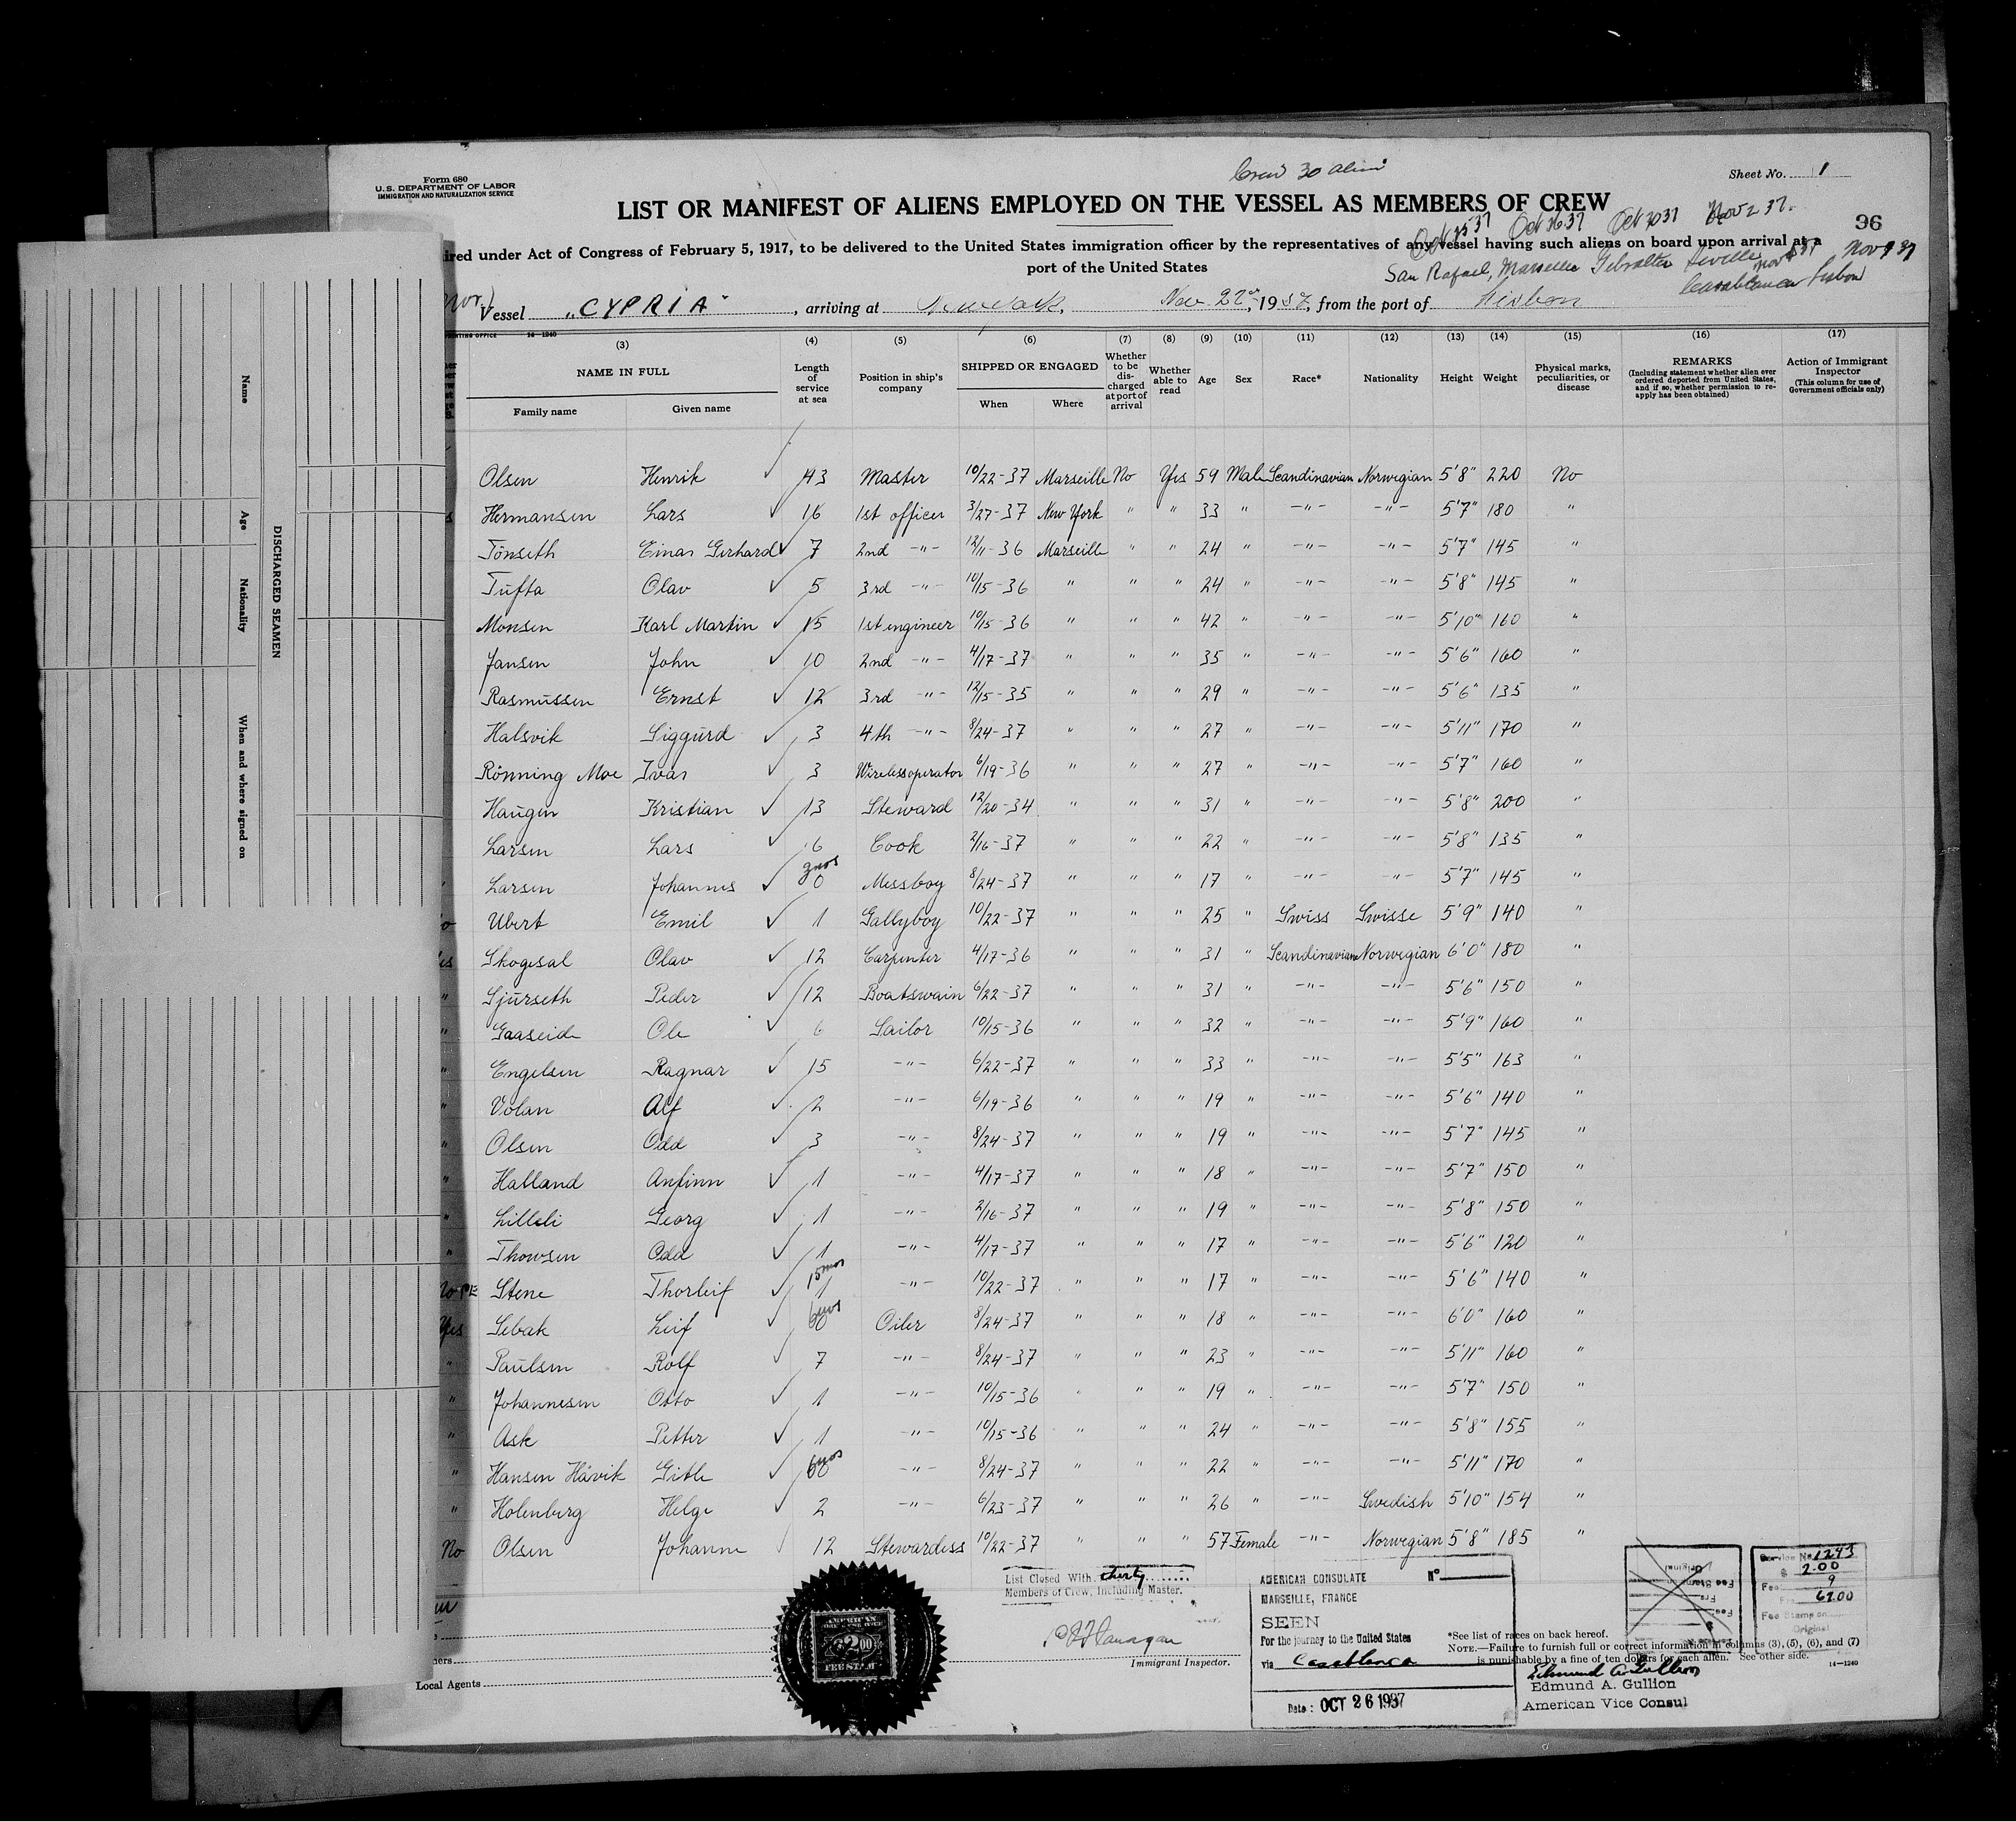 Form 680
U.S. DEPARTMENT OF LABOR
IMMIGRATION AND NATURALIZATION SERVICE
Crew 30 alien
Sheet No. 1
LIST OR MANIFEST OF ALIENS EMPLOYED ON THE VESSEL AS MEMBERS OF CREW
96
Oct 25 37 Oct 26 37 Oct 30 37 Nov 2 37.
ired under Act of Congress of February 5, 1917, to be delivered to the United States immigration officer by the representatives of any vessel having such aliens on board upon arrival at a
port of the United States
San Rafael, Marseille Gibralter Seville Nov 9 37
Casablanca Lisbon
Nor) Vessel "CYPRIA", arriving at New York, Nov. 22nd, 1937, from the port of Lisbon
PRINTING OFFICE 14-1240
(3) (4) (5) (6) (7) (8) (9) (10) (11) (12) (13) (14) (15) (16) (17)
NAME IN FULL
Family name Given name
Length of service at sea
Position in ship's company
SHIPPED OR ENGAGED
When Where
Whether to be discharged at port of arrival
Whether able to read
Age
Sex
Race*
Nationality
Height
Weight
Physical marks, peculiarities, or disease
REMARKS
(Including statement whether alien ever ordered deported from United States, and if so, whether permission to reapply has been obtained)
Action of Immigrant Inspector
(This column for use of Government officials only)
Olsen Henrik 43 Master 10/22-37 Marseille No Yes 59 Male Scandinavian Norwegian 5'8" 220 No
Hermansen Lars 16 1st officer 3/27-37 New York " " 33 " -"- -"- 5'7" 180 "
Tönseth Einar Gerhard 7 2nd -"- 12/11-36 Marseille " " 24 " -"- -"- 5'7" 145 "
Tufta Olav 5 3rd -"- 10/15-36 " " " 24 " -"- -"- 5'8" 145 "
Monsen Karl Martin 15 1st engineer 10/15-36 " " " 42 " -"- -"- 5'10" 160 "
Jansen John 10 2nd -"- 4/17-37 " " " 35 " -"- -"- 5'6" 160 "
Rasmussen Ernst 12 3rd -"- 12/15-35 " " " 29 " -"- -"- 5'6" 135 "
Halsvik Siggurd 3 4th -"- 8/24-37 " " " 27 " -"- -"- 5'11" 170 "
Rönning Moe Ivar 3 Wirelessoperator 6/19-36 " " " 27 " -"- -"- 5'7" 160 "
Haugen Kristian 13 Steward 12/20-34 " " " 31 " -"- -"- 5'8" 200 "
Larsen Lars 6 Cook 2/16-37 " " " 22 " -"- -"- 5'8" 135 "
" Larsen Johannes 0 Messboy 8/24-37 " " " 17 " -"- -"- 5'7" 145 "
Ubert Emil 1 Gallyboy 10/22-37 " " " 25 " Swiss Swisse 5'9" 140 "
es Skogesal Olav 12 Carpenter 4/17-36 " " " 31 " Scandinavian Norwegian 6'0" 180 "
" Sjurseth Peder 12 Boatswain 6/22-37 " " " 31 " -"- -"- 5'6" 150 "
" Gaaseide Ole 6 Sailor 10/15-36 " " " 32 " -"- -"- 5'9" 160 "
" Engelsen Ragnar 15 -"- 6/22-37 " " " 33 " -"- -"- 5'5" 163 "
" Volan Alf 2 -"- 6/19-36 " " " 19 " -"- -"- 5'6" 140 "
" Olsen Odd 3 -"- 8/24-37 " " " 19 " -"- -"- 5'7" 145 "
" Halland Anfinn 1 -"- 4/17-37 " " " 18 " -"- -"- 5'7" 150 "
" Lilleli Georg 1 -"- 2/16-37 " " " 19 " -"- -"- 5'8" 150 "
" Thowsen Odd 1 -"- 4/17-37 " " " 17 " -"- -"- 5'6" 120 "
No PE Stene Thorleif 15mos 1 -"- 10/22-37 " " " 17 " -"- -"- 5'6" 140 "
Yes Sebak Leif 6mos Oiler 8/24-37 " " " 18 " -"- -"- 6'0" 160 "
" Paulsen Rolf 7 -"- 8/24-37 " " " 23 " -"- -"- 5'11" 160 "
" Johannesen Otto 1 -"- 10/15-36 " " " 19 " -"- -"- 5'7" 150 "
" Ask Petter 1 -"- 10/15-36 " " " 24 " -"- -"- 5'8" 155 "
" Hansen Håvik Gitle 6mos -"- 8/24-37 " " " 22 " -"- -"- 5'11" 170 "
" Holenberg Helge 2 -"- 6/23-37 " " " 26 " -"- Swedish 5'10" 154 "
No Olsen Johanne 12 Stewardess 10/22-37 " " " 57 Female -"- Norwegian 5'8" 185 "
List Closed With thirty
Members of Crew, Including Master.
Immigrant Inspector.
Local Agents
AMERICAN
$2.00
FEE STAMP
AMERICAN CONSULATE No
MARSEILLE, FRANCE
SEEN
For the journey to the United States
via Casablanca
Date: OCT 26 1937
Service No. 1243
$ 2.00
Fee 9
62.00
Fee Stamp on
Original
*See list of races on back hereof.
NOTE.—Failure to furnish full or correct information in columns (3), (5), (6), and (7)
is punishable by a fine of ten dollars for each alien. See other side.
14-1240
Edmund A. Gullion
Edmund A. Gullion
American Vice Consul
DISCHARGED SEAMEN
Name
Age
Nationality
When and where signed on